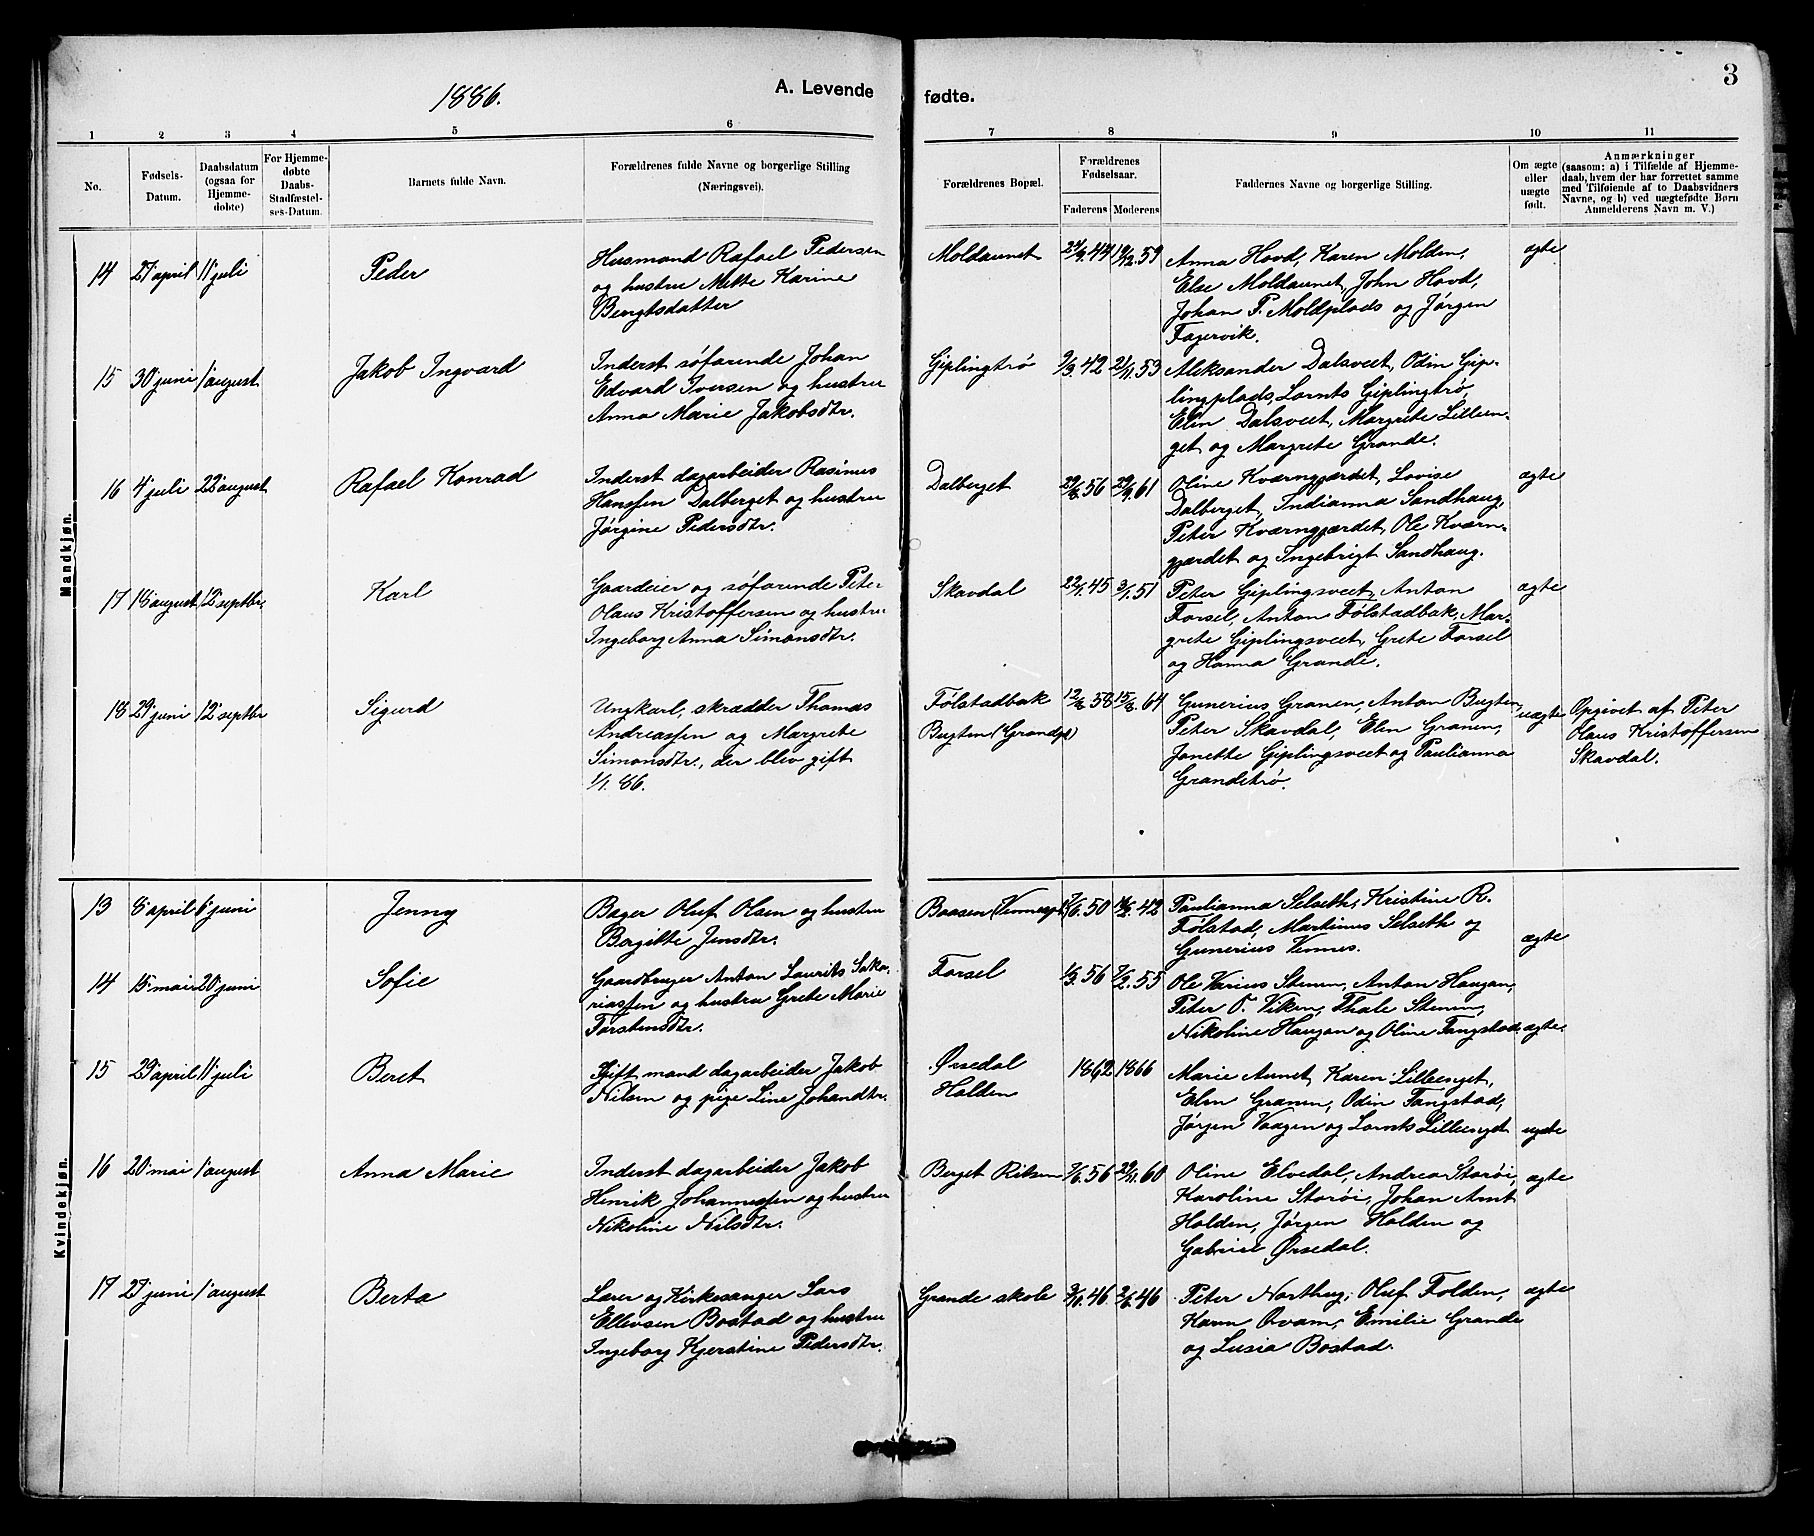 1886.
A. Levende fødte.
3
1 2 3 4 5 6 7 8 9 10 11
No.
Fødsels-Datum.
Daabsdatum (ogsaa for Hjemme-døbte)
For Hjemme-døbte Daabs-Stadfæstel-ses-Datum.
Barnets fulde Navn.
Forældrenes fulde Navne og borgerlige Stilling (Næringsvei).
Forældrenes Bopæl.
Forældrenes Fødselsaar.
Faderens Moderens
Faddernes Navne og borgerlige Stilling.
Om ægte eller uægte født.
Anmærkninger
(saasom: a) i Tilfælde af Hjemme-
daab, hvem der har forrettet samme
med Tilføiende af to Daabsvidners
Navne, og b) ved uægtefødte Børn
Anmelderens Navn m. V.)
Mandkjøn.
14 27 april 11 juli Peder
Husmand Rafael Pedersen
og hustru Mette Karine
Bengtsdatter
Moldaunet 44 59
Anna Hovd, Karen Molden,
Else Moldaunet, John Hovd,
Johan P. Moldplads og Jørgen
Fagervik.
ægte
15 30 juni 1 august Jakob Ingvard
Inderst søfarende Johan
Edvard Iversen og hustru
Anna Marie Jakobsdtr.
Giplingtrø 42 53
Aleksander Dalsveet, Odin Gip-
lingplads, Lornts Giplingtrø,
Elen Dalsveet, Margrete Lilleen-
get og Margrete Grande.
16 4 juli 22 august Rafael Konrad
Inderst dagarbeider Rasinus
Hanssen Dalberget og hustru
Jørgine Pedersdtr.
Dalberget 29/8.56 29/9.61
Oline Kværngjærdet, Lovise
Dalberget, Indianna Sandhaug,
Peter Kværngjærdet, Ole Kværn-
gjærdet og Ingebrigt Sandhaug.
ægte
17 18 august 12 septbr. Karl
Gaardeier og søfarende Peter
Olaus Kristoffersen og hustru
Ingeborg Anna Simonsdtr.
Skavdal 22/1.45 3/1.51
Peter Giplingsveet, Anton
Forsel, Anton Følstadbak, Mar-
grete Giplingsveet, Grete Forsel
og Hanna Grande.
ægte
18 29 juni 12 septbr Sigurd
Ungkarl, skrædder Thomas
Andreassen og Margrete
Simonsdtr., der blev gift
1/7.86.
Følstadbak
Bugten (Grandpl)
12/8.58 15/8.64
Gunerius Granen, Anton Bugten,
Peter Skavdal, Elen Granen,
Janette Giplingsveet og Paulianna
Grandetrø.
uægte
Opgivet af Peter
Olaus Kristoffersen
Skavdal.
Kvindekjøn.
13 8 april 6 juni Jenny
Bager Oluf Olsen og hustru
Bergitte Jensdtr.
Baasen (Vennespl) 50 42
Paulianna Selseth, Kristine R.
Følstad, Martinus Selseth og
Gunerius Vennes.
ægte
14 15 mai 20 juni Sofie
Gaardbruger Anton Laurits Saka-
riassen og hustru Grete Marie
Torstensdtr.
Forsel 56 55
Ole Varius Stenen, Anton Haugan,
Peter O. Viken, Thale Stenen,
Nikoline Haugan og Oline Tangstad.
ægte.
15 29 april 11 juli Beret
Gift mand dagarbeider Jakob
Nilsen og pige Line Johandtr.
Ørsedal
Holden
1862 1866
Marie Aunet, Karen Lilleenget,
Elen Granen, Odin Tangstad,
Jørgen Vaagen og Lornts Lilleenget
uægte
16 20 mai 1 august Anna Marie
Inderst dagarbeider Jakob
Henrik Johannessen og hustru
Nikoline Nilsdtr.
Berget Ritsem 56 29/11.60
Oline Elvedal, Andrea Starøi,
Karoline Starøi, Johan Arnt
Holden, Jørgen Holden og
Gabriel Ørsedal.
ægte
17 27 juni 1 august Berta
Lærer og Kirkesanger Lars
Ellevsen Bostad og hustru
Ingeborg Kjerstine Pedersdtr.
Grande skole 46 46
Peter Northug, Oluf Folden,
Karen Qvam, Emilie Grande
og Lusia Bostad.
ægte